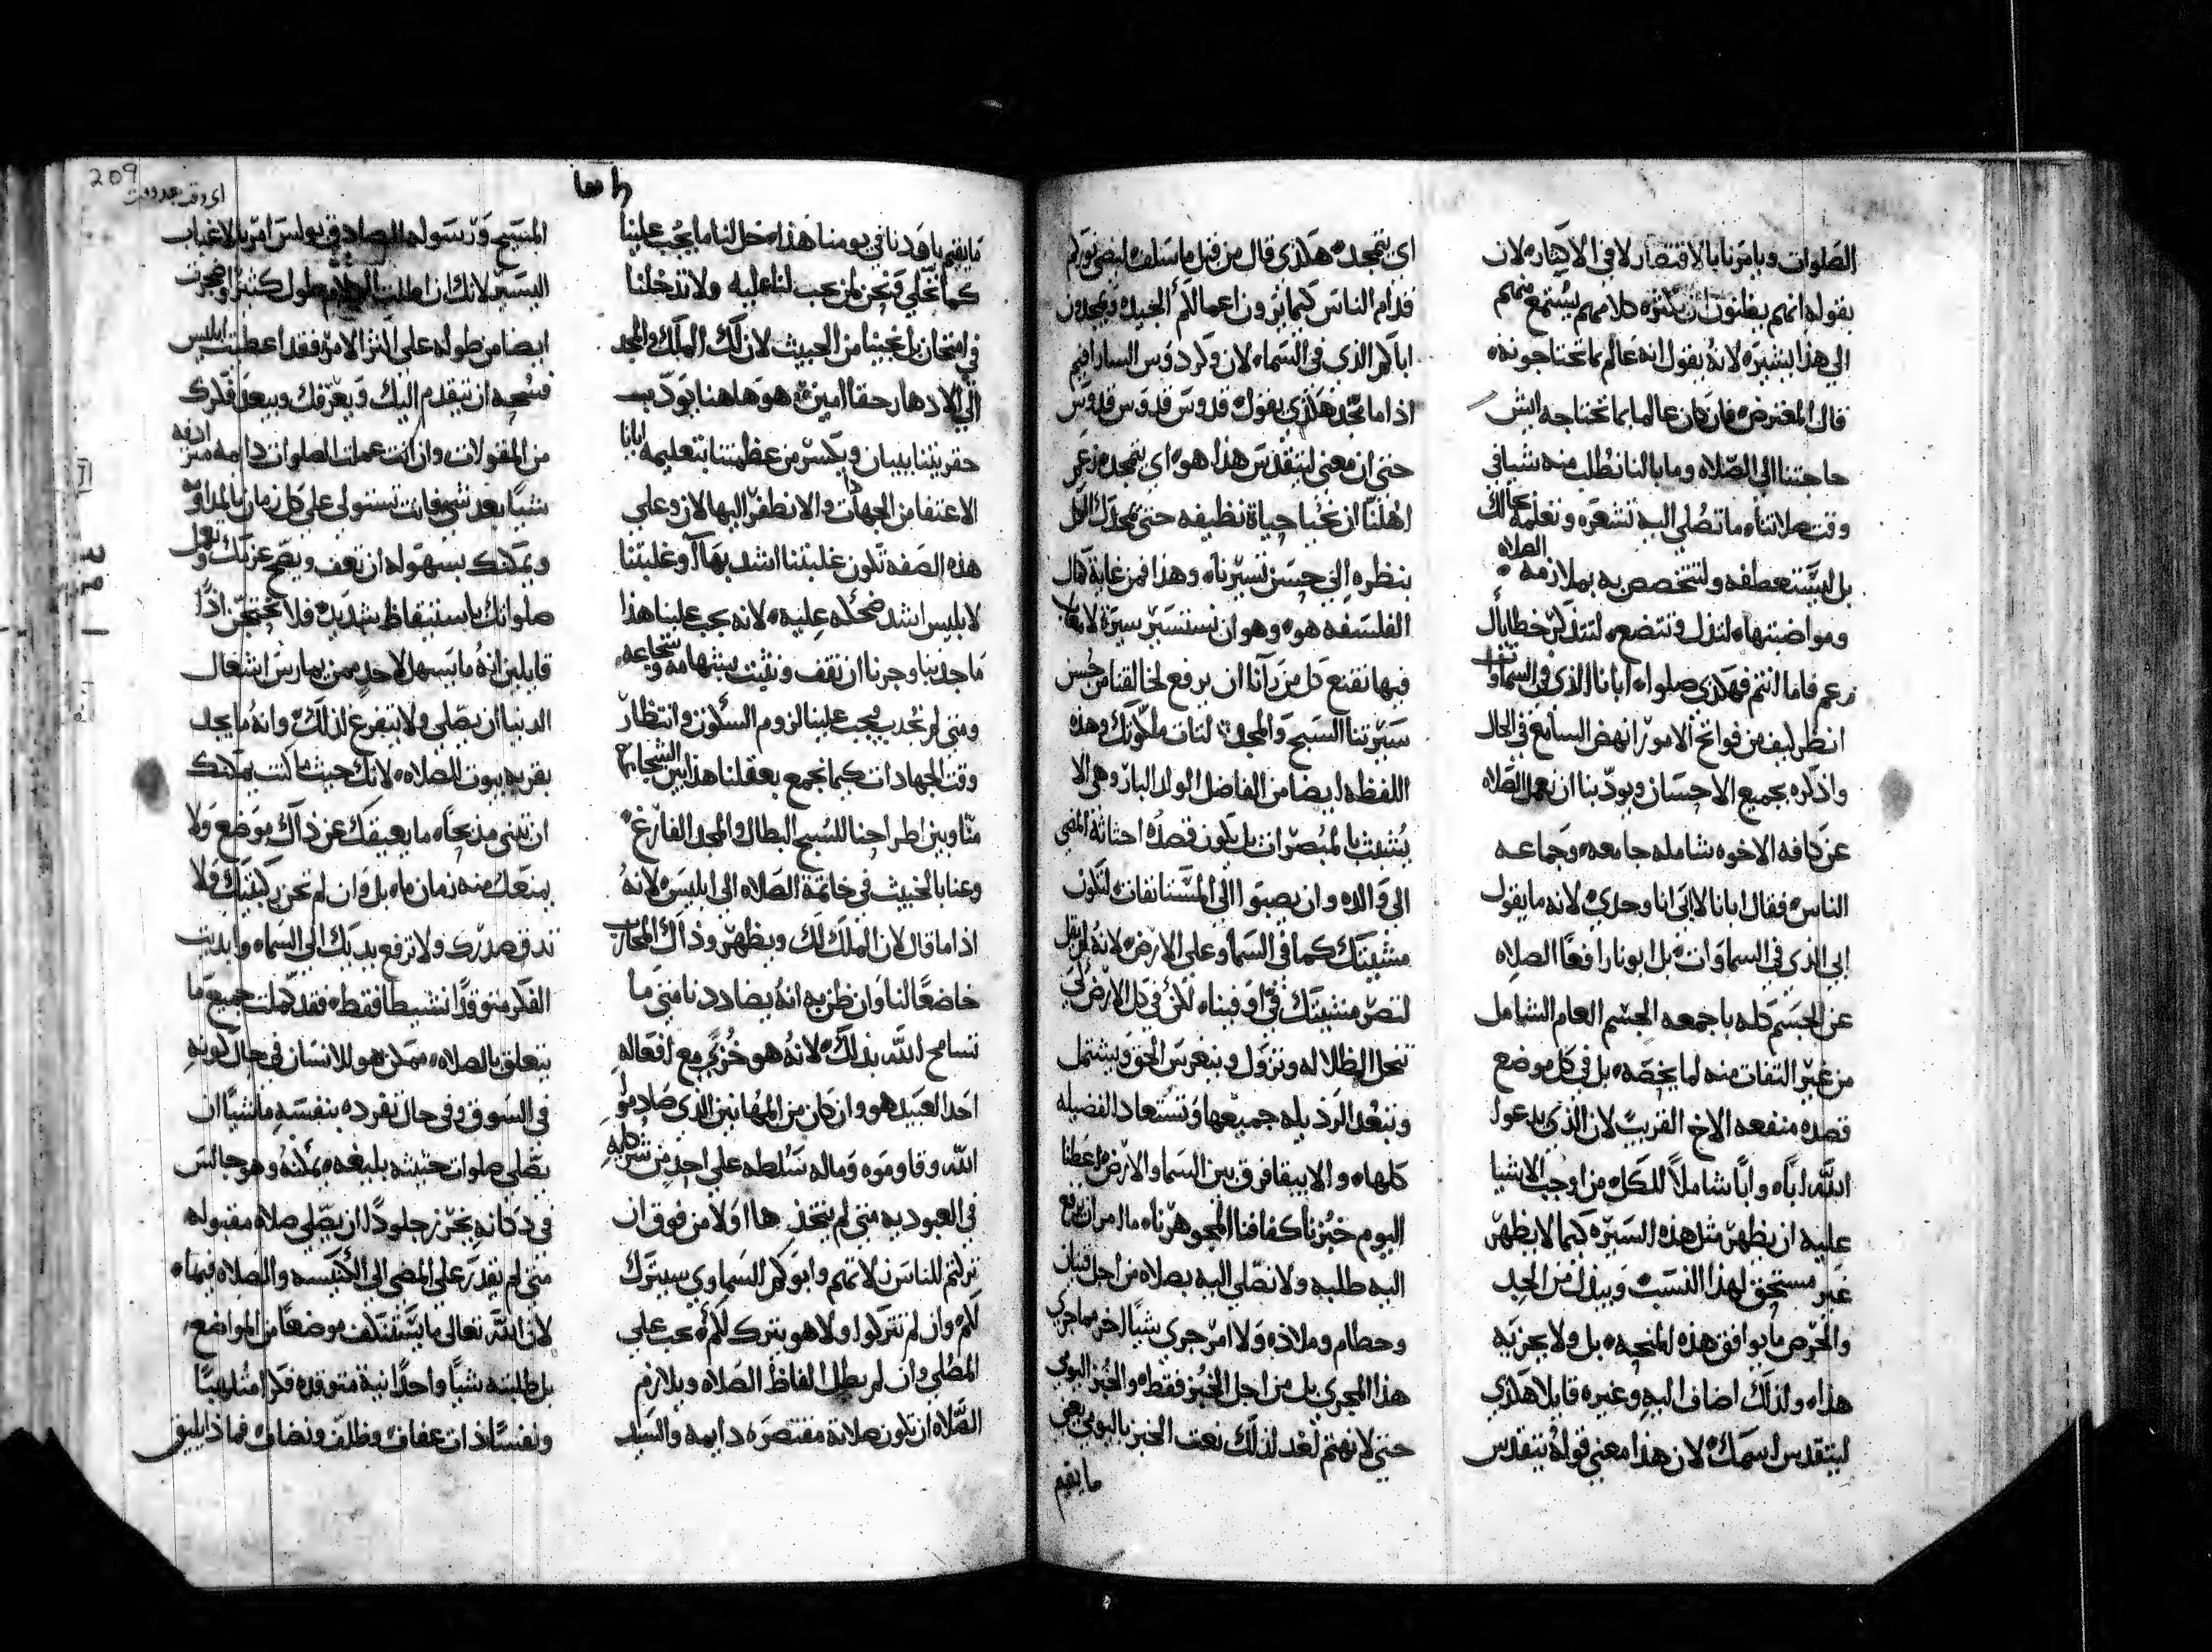 الصلوات ويامرنا بالاقتصار لا في الاكثاره لان
بقوله انهم يظنون ان بكثرة كلامهم يستمع منهم
الي هذا يشيره لانه يقول انه عالم بما تحتاجونه
قال المعترض فان كان عالما بما نحتاجه ايش
حاجتنا الي الصلاه وما بالنا نطلب منه شيا في
وقت صلاتناه ما تصلي اليه لتشعره وتعلمه بحالك
بل لتستعطفه ولتتخصص به بملازمه الصلاه
ومواضبتهاه لتذل وتتضعه لتتذكر خطاياك
زعم فاما انتم فهكذي صلواه ابانا الذي في السماوات
انظر كيف من فواتح الامور انهض السامع في الحال
واذكره بجميع الاحسان ويودبنا ان نعمل الصلاه
عن كافه الاخوه شامله جامعه وجماعه
الناس فقال ابانا لا ابي انا وحدي لانه ما يقول
ابي الذي في السماوات بل ابونا رافعا الصلاه
عن الجسم كله باجمعه الجسم العام الشامل
من غير التفات منه لما يخصه بل في كل موضع
قصده منفعه الاخ القريب لان الذي يدعوا
الله اباه وابا شاملا للكل من اوجب الاشيا
عليه ان يظهر مثل هذه السيره كيما لا يظهر
غير مستحق لهذا النسب ويبذل من الجد
والحرص ما يوافق هذه المنحه بل ولا يجزيه
هذاه ولذلك اضاف اليه وغيره قايلا هكذي
ليتقدس اسمك لان هذا معني قوله يتقدس
اي يتمجد هكذي قال من قبل ما سلف ليضي نوركم
قدام الناس كيما يرون اعمالكم الجيده ويمجدون
اباكم الذي في السماه لان وكردوس السارافيم
اذا ما مجد هكذي يقول قدوس قدوس قدوس
حتي ان معني ليتقدس هذا هو اي يتمجد زعم
اهلنا ان نحيا حياة نظيفه حتي يمجدك الكل
بنظره الي حسن سيرتناه وهذا فمن غاية كمال
الفلسفه هو وهو ان نستسير سيرة لا يعاب
فيها نقنع كل من رآنا ان يرفع لخالقنا من حسن
سيرتنا السبح والمجد لتات ملكوتك وهذه
اللفظه ايضا من الفاضل الولد البار وهي الا
يتشبث بالمبصرات بل يكون قصده احتاثة المضي
الي والده وان يصبوا الي المستانفات لتكون
مشيتك كما في السما وعلي الارض لانه لم يقل
لتصر مشيتك في او فيناه لكن في كل الارض لكي
تنحل الظلاله وتزول وينغرس الحق ويشتمل
وتبعد الرذيله جميعها وتستعاد الفضيله
كلهاه والا يبقا فرق بين السما والارض اعطنا
اليوم خبزنا كفافنا الجوهرناه ما امر ان نرفع
اليه طلبه ولا نصلي اليه بصلاه من اجل قنيان
وحطام وملاذه ولا امر جري شيا اخر مما جري
هذا المجري بل من اجل الخبز فقطه والخبز اليومي
حتي لا نهتم لغد لذلك نعت الخبز باليومي يعني
ما يقيم
ما يقيم باودنا في يومنا هذاه خل لنا ما يجب علينا
كما نخلي ونحن لمن يجب لنا عليه ولا تدخلنا
في امتحان بل نجينا من الخبيث لان لك الملك والمجد
الي الادهار حقا امين هوها هنا يودب
حقريتنا ببيان ويكسر من عظمتنا بتعليمه ايانا
الاعتفا من الجهادات والا نطفر اليها لان وعلي
هذه الصفه تكون غلبتنا اشد بها آ وغلبتنا
لابليس اشد ضحكه عليه لانه يجب علينا هذا
ما جذبنا وجرنا ان نقف ونثبت بشهامه وشجاعه
ومتي لم نجدب يجب علينا لزوم السكون وانتظار
وقت الجهادات كيما نجمع بعقلنا هذا بين الشجاعه
منا وبين اطراحنا للسبح البطال والمجد الفارغ
وعنا بالخبيث في خاتمة الصلاه الي ابليس لانه
اذا ما قال لان الملك لك ويظهر وذاك المحارب
خاضعا لنا وان ظن به انه يضاددنا متي ما
تسامح الله بذلك لانه هو خزي مع افعاله
احد العبيد هو وان كان من المهانين الذي صادموا
الله وقاوموه وماله سلطه علي احد من شركايه
في العبوديه متي لم يتخذها اولا من فوق ان
تركتم للناس زلاتهم وابوكم السماوي سيترك
لكم وان لم تتركوا ولا هو يترك لكم يجب علي
المصلي وان لم يطل الفاظ الصلاه ويلازم
الصلاه ان تكون صلاته مقتصره دايمه والسيد
209
اي وقت بعد وقت
المسيح ورسوله الصادق بولس امر بالاغباب
اليسير لانك ان اطلت الكلام طول كثير وضجرت
ايضا من طوله علي اكثر الامر فقد اعطيت ابليس
فسحه ان يتقدم اليك ويعرقلك ويبعد فكرك
من المقولات وان انت عملت الصلوات دايمه متراد فه
شيا بعد شي فانت تستولي علي كل زمان بالمداومه
ويمكنك بسهوله ان تعف ويصح عزمك وتعمل
صلواتك باستيقاظ شديد فلا تحتجن اذا
قايلين انه ما يسهل لاحد ممن يمارس اشغال
الدنيا ان يصلي ولا يتفرغ لذلك وانه ما يجد
بقربه بيوت الصلاه لانك حيث ما كنت يمكنك
ان تبني مذبحاه ما يعيقك عن ذلك موضع ولا
يمنعك منه زمان ماه بل وان لم تحن ركبتيك ولا
تدق صدرك ولا ترفع يديك الي السماه وابديت
الفكر متوقدا نشيطا فقطه فقد كملت جميع ما
يتعلق بالصلاه ممكن هو للانسان في حال كونه
في السوق وفي حال تفرده بنفسه ماشيا ان
يصلي صلوات حثيثه بليغه يمكنه وهو جالس
في دكانه يخرز جلودا ان يصلي صلاه مقبوله
متي لم يقدر علي المضي الي الكنيسه والصلاه فيهاه
لان الله تعالي ما يستنكف موضعا من المواضع
بل طلبته شيا واحدا نية متوقده فكرا ملتهبا
ونفسا ذات عفاف وظلف ونصاف فماذا يليق